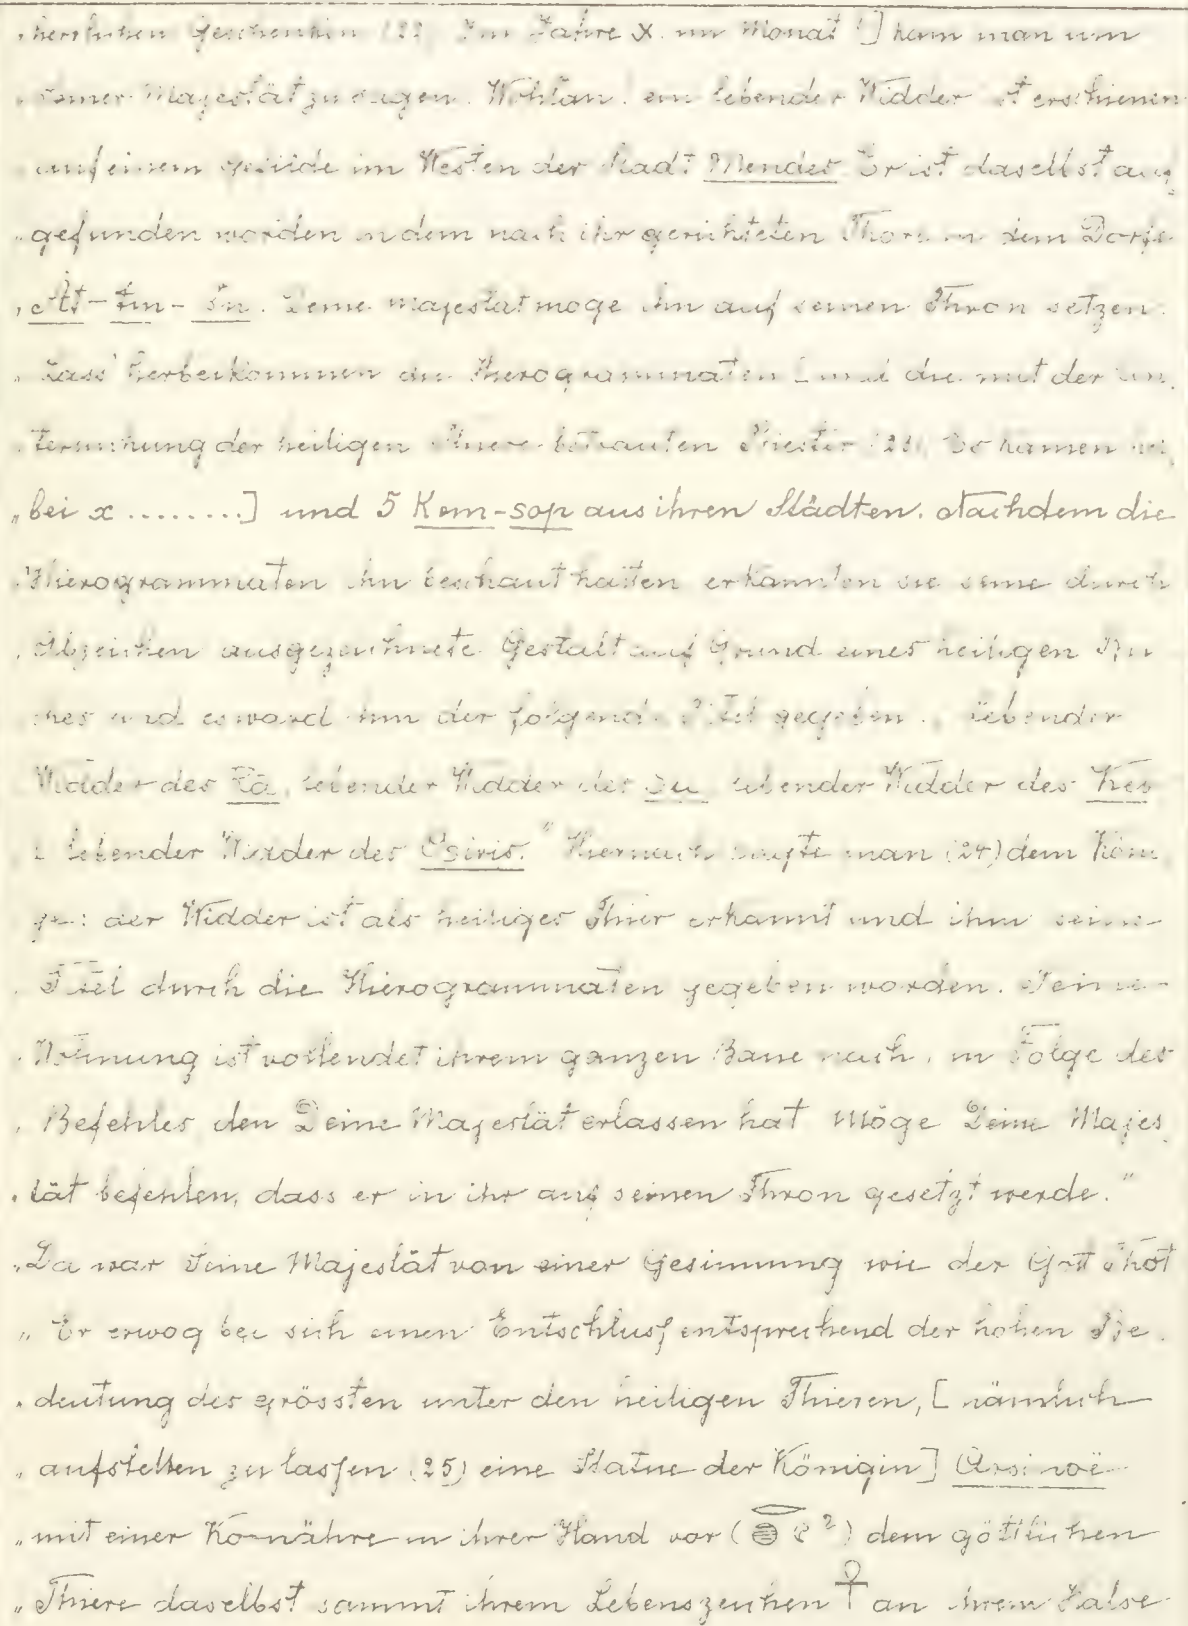 „herrlichen Geschenken (22) Im Jahre X. im Monat ] kam man um
„Seiner Majestät zu sagen. Wohlan. ein lebender Widder ist erschienen
„auf einem Gefilde im Westen der Stadt Mendes Er ist daselbst auf
„gefunden worden in dem nach ihr gerichteten Thore in dem Dorfe
„. Deine Majestät möge ihn auf seinen Thron setzen.
„Lass' herbeikommen die Hierogrammaten [und die mit der Un
„tersuchung der heiligen Thiere betrauten Priester (23) Es kamen her
„bei x ........] und 5 Kem-sop aus ihren Städten. Nachdem die
„Hierogrammaten ihn beschaut hatten erkannten sie seine durch
„Abzeichen ausgezeichnete Gestalt auf Grund eines heiligen Bu
ches und es ward ihm der folgende Titel gegeben. „Lebender
Widder des Rā, lebender Widder des Šu, lebender Widder des Keb
„lebender Widder des Osiris." Hiernach sagte man (24) dem Köni
ge: der Widder ist als heiliges Thier erkannt und ihm seine
„Titel durch die Hierogrammaten gegeben worden. Seine
„Wohnung ist vollendet ihrem ganzen Baue nach, in Folge des
„Befehles den Deine Majestät erlassen hat Möge Deine Majes
„tät befehlen, dass er in ihr auf seinen Thron gesetzt werde."
„Da war Seine Majestät von einer Gesinnung wie der Gott Thot
„Er erwog bei sich einen Entschluss entsprechend der hohen Be
„deutung des grössten unter den heiligen Thieren, [nämlich
„aufstellen zu lassen (25) eine Statue der Königin] Arsinoë
„mit einer Kornähre in ihrer Hand vor ( ) dem göttlichen
„Thiere daselbst sammt ihrem Lebenszeichen ☥ an ihrem Halse